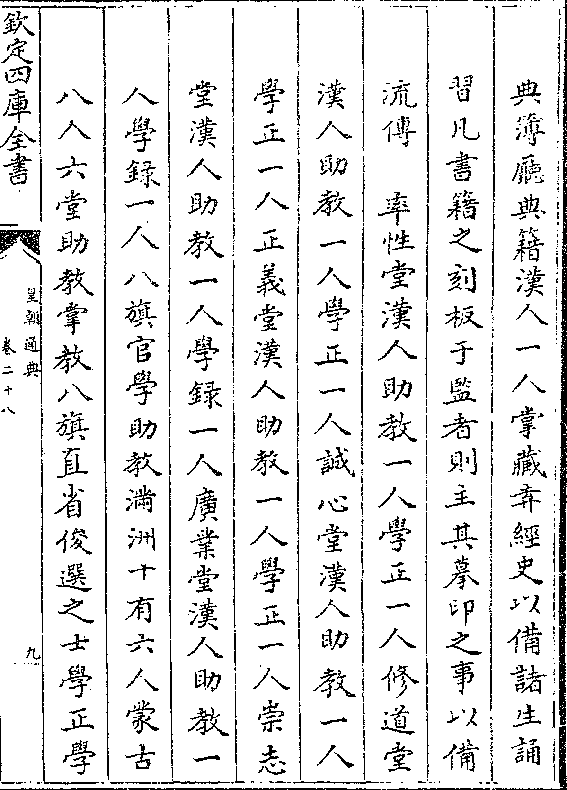 典簿廳典籍漢人一人掌藏弆經史以備諸生誦
習凡書籍之刻板于監者則主其摹印之事以備
流傳　率性堂漢人助教一人學正一人修道堂
漢人助教一人學正一人誠心堂漢人助教一人
學正一人正義堂漢人助教一人學正一人崇志
堂漢人助教一人學録一人廣業堂漢人助教一
人學録一人八旗官學助教滿洲十有六人蒙古
八人六堂助教掌教八旗直省俊選之士學正學
欽定四庫全書
皇朝通典
卷二十八
九